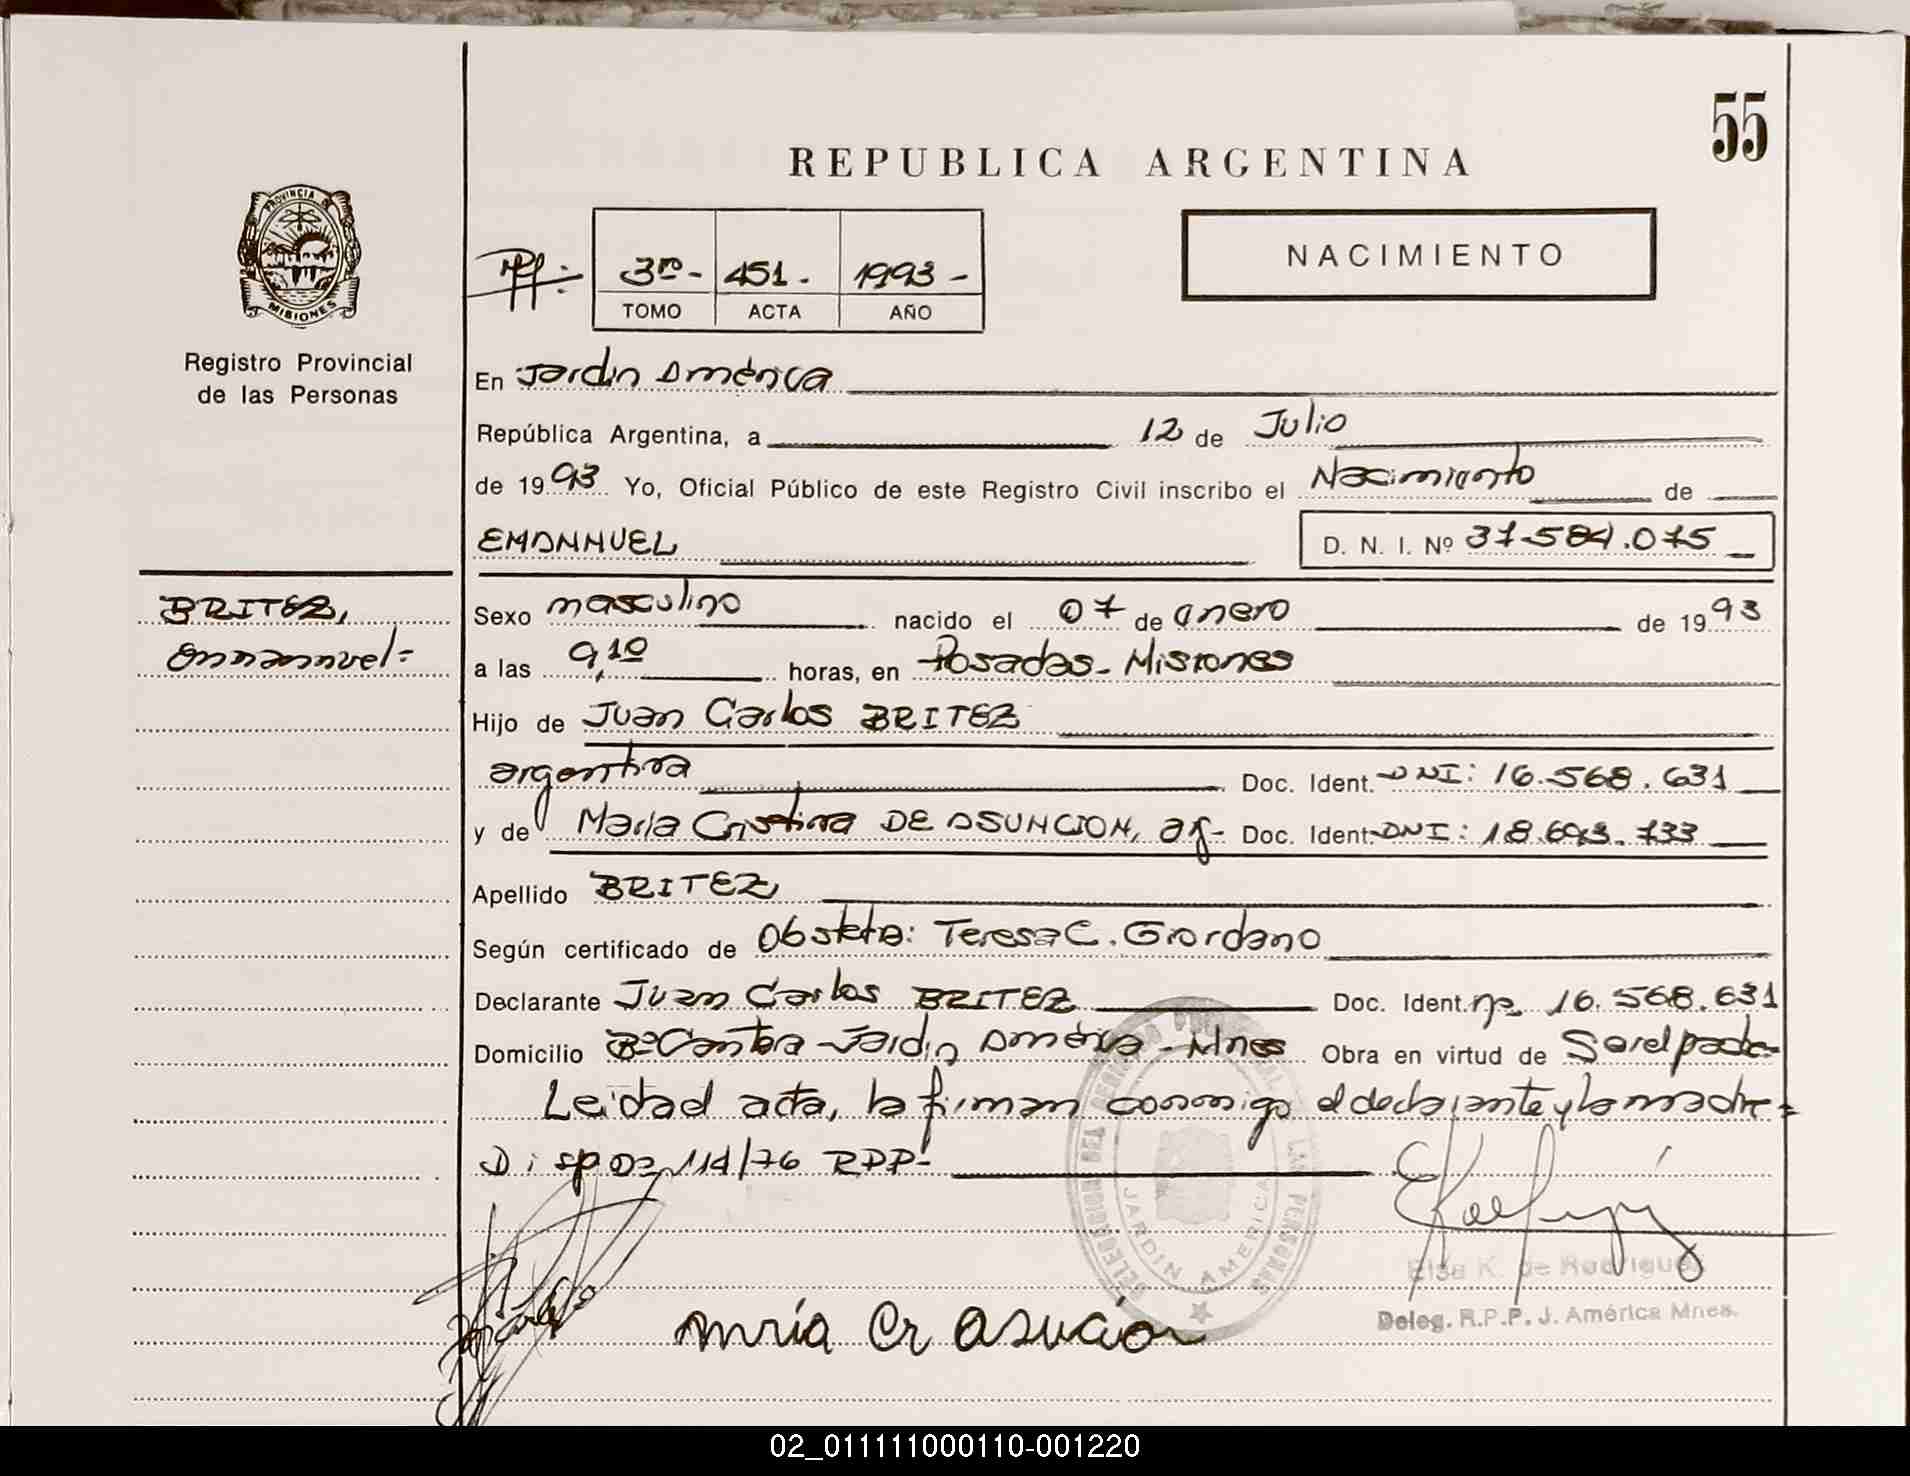 55
REPUBLICA ARGENTINA
PROVINCIA DE
MISIONES
Registro Provincial
de las Personas
3ro - 451. 1993 -
TOMO ACTA AÑO
NACIMIENTO
En Jardin América
República Argentina, a 12 de Julio
de 1993 Yo, Oficial Público de este Registro Civil inscribo el Nacimiento de
EMANNUEL D. N. I. Nº 37.584.075
BRITEZ,
Emmannuel=
Sexo masculino nacido el 07 de enero de 1993
a las 9,10 horas, en Posadas - Misiones
Hijo de Juan Carlos BRITEZ
argentina Doc. Ident. DNI: 16.568.631
y de Maria Cristina DE ASUNCION, arg- Doc. Ident. DNI: 18.693.733
Apellido BRITEZ
Según certificado de Obsteta: Teresa C. Giordano
Declarante Juan Carlos BRITEZ Doc. Ident. nº 16.568.631
Domicilio Bº Cantera - Jardin América - Mnes Obra en virtud de Ser el padre-
Leidad acta, la firman conmigo el declarante y la madre =
Dispos 114/76 RPP-
DELEGACION DEL REGISTRO PROVINCIAL DE LAS PERSONAS
JARDIN AMERICA
Elsa K. de Rodriguez
Deleg. R.P.P. J. América Mnes.
mría Cr asución
02_011111000110-001220